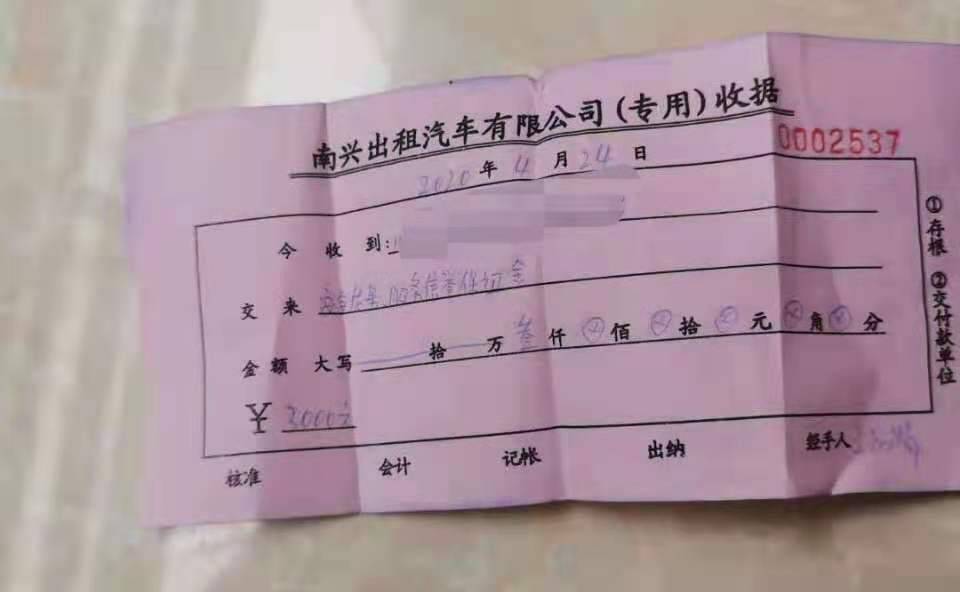 南兴出租汽车有限公司(专用)收据
0002537
2020年4月24日
今收到:
交来 服务信誉保证金
金额大写 拾 万 叁仟 ⊗佰 ⊗拾 ⊗元 ⊗角 ⊗分
¥ 3000元
核准 会计 记帐 出纳 经手人
①存根 ②交付款单位